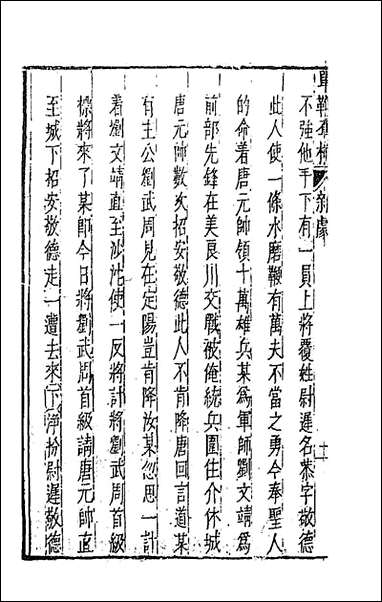 單鞭奪槊 新劇 十一
不強他手下有一員上將覆姓尉遲名恭字敬德
此人使一條水磨鞭有萬夫不當之勇今奉聖人
的命着唐元帥領十萬雄兵某爲軍師劉文靖爲
前部先鋒在美良川交戰被俺統兵圍住介休城
唐元帥數次招安敬德此人不肯降唐回言道某
有主公劉武周見在定陽豈肯降汝某忽思一計
着劉文靖直至沙沱使一反將計將劉武周首級
標將來了某師今日將劉武周首級請唐元帥直
至城下招安敬德走一遭去來下淨扮尉遲敬德